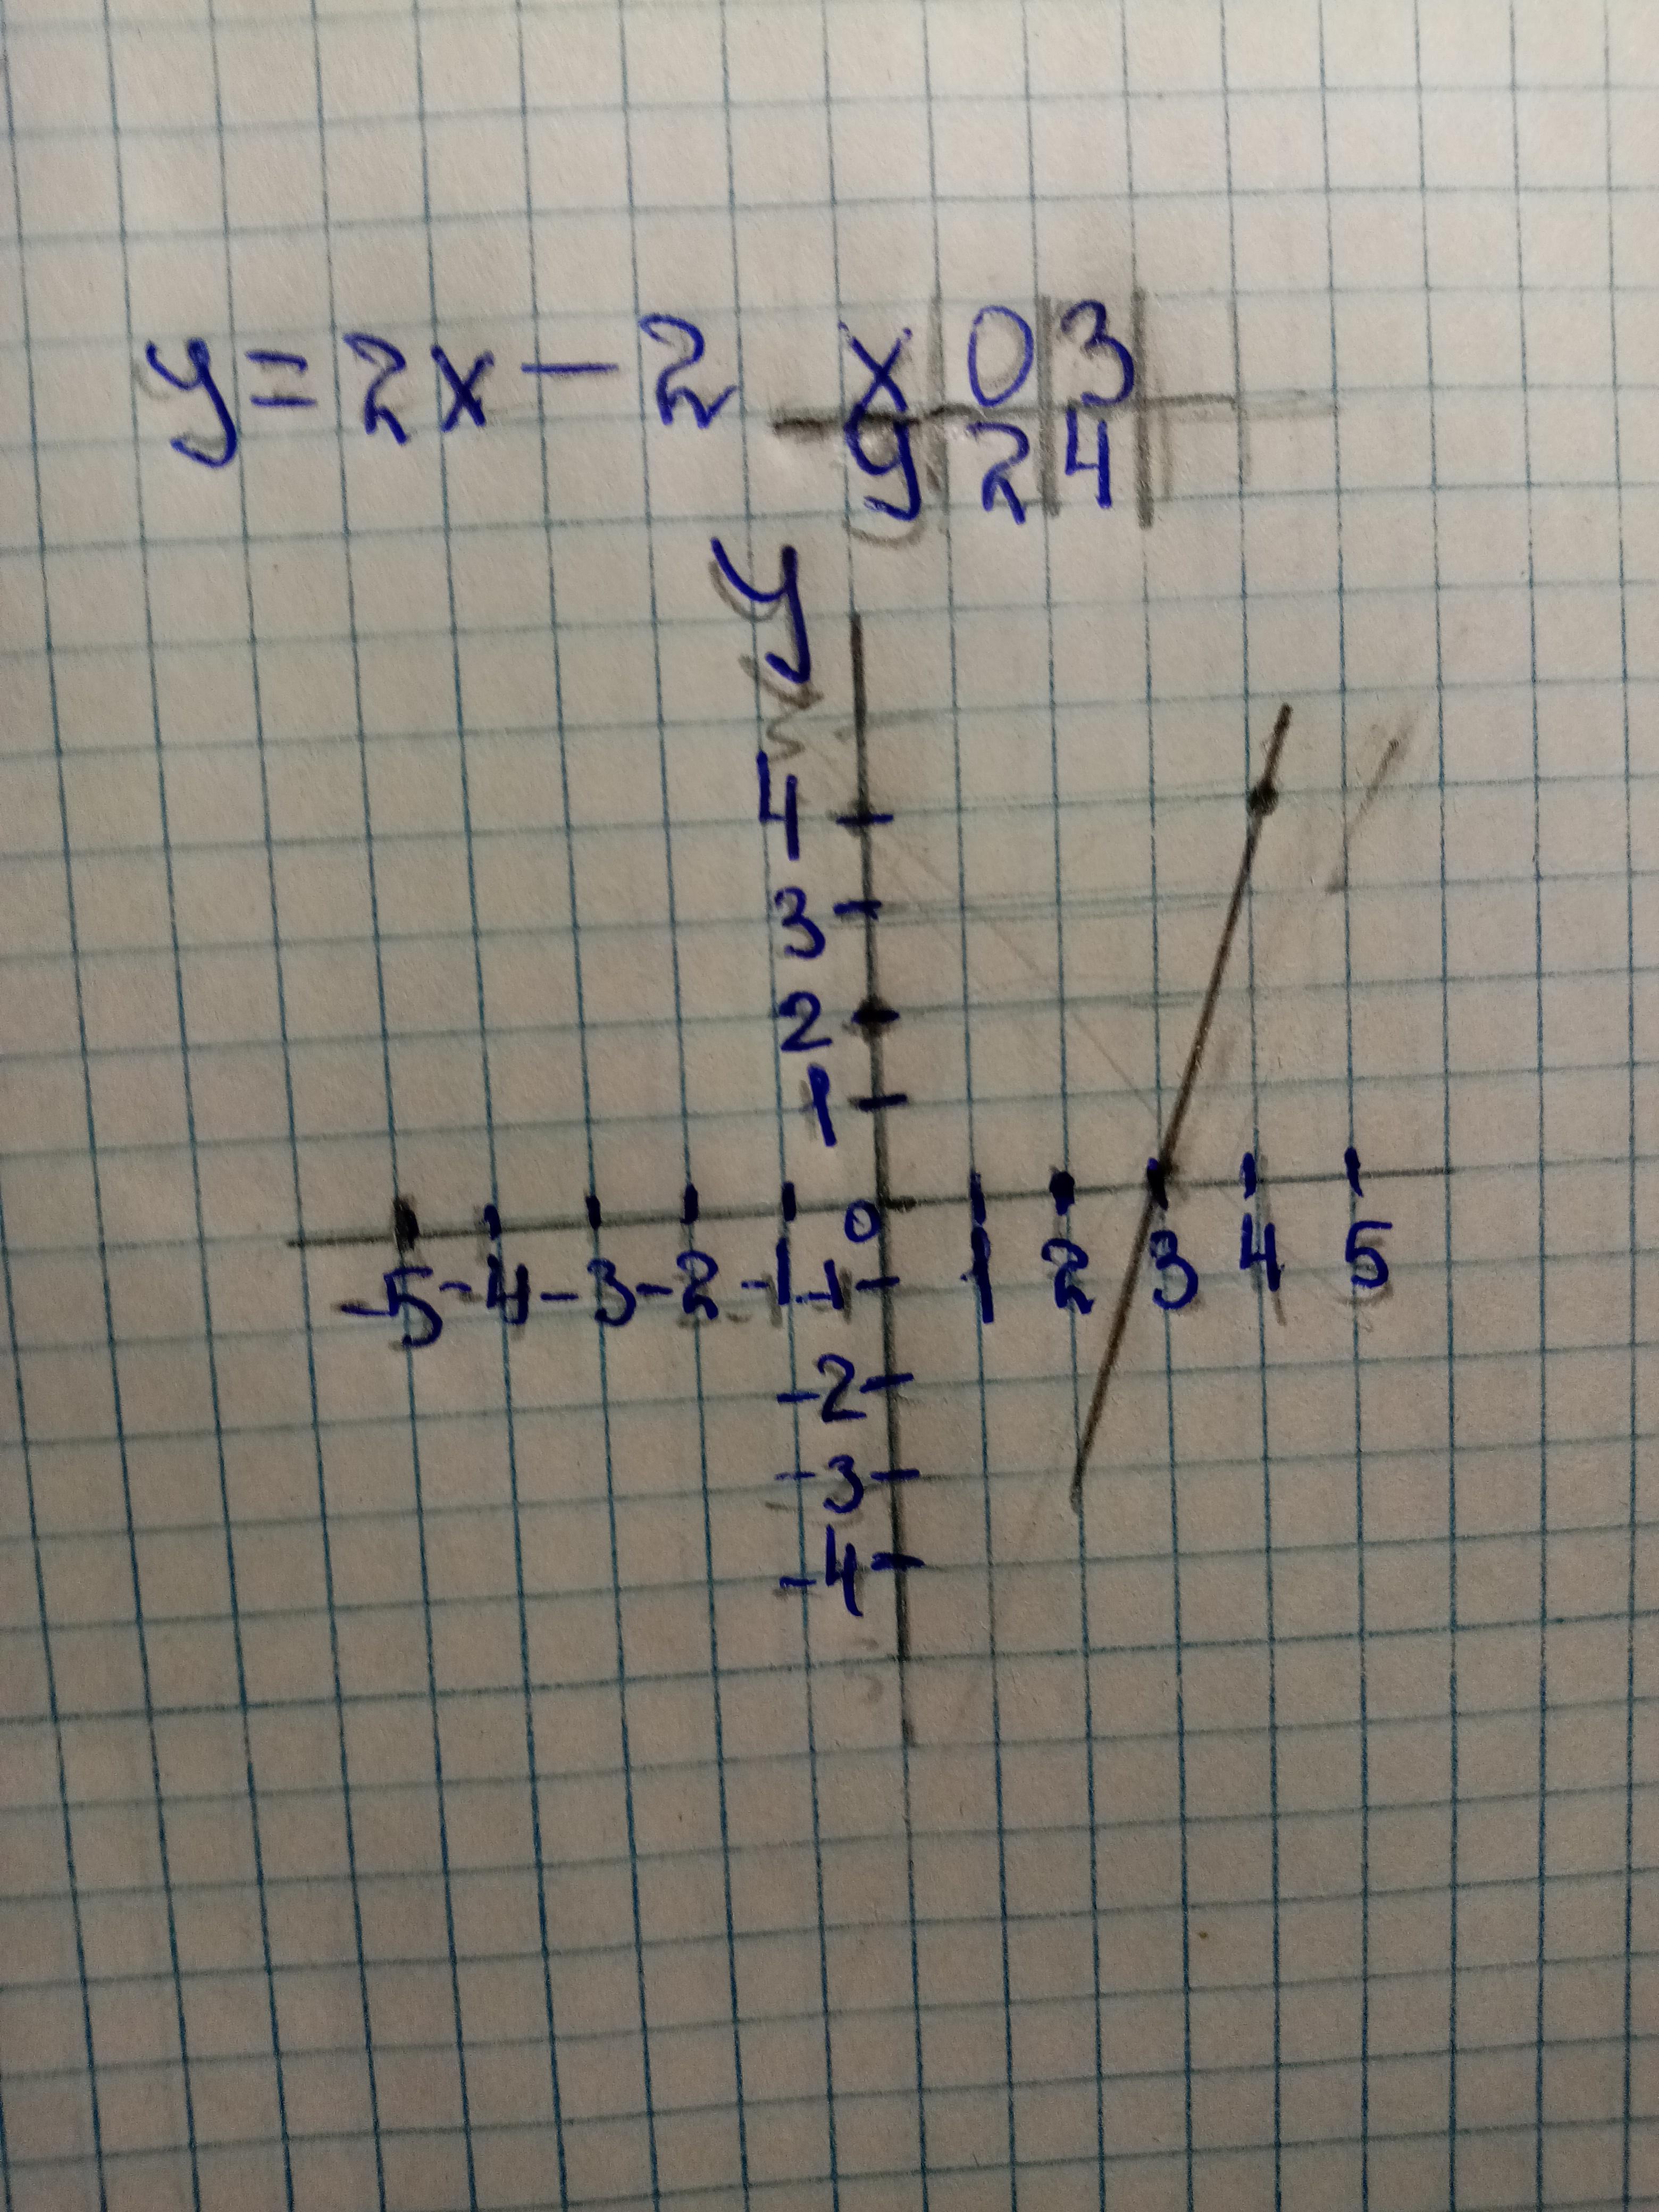 y=2x-2 x 0 3
y 2 4
y
4
3
2
1
0
-5 -4 -3 -2 -1 -1 1 2 3 4 5
-2
-3
-4